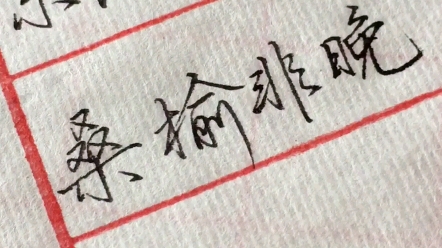 桑榆非晚